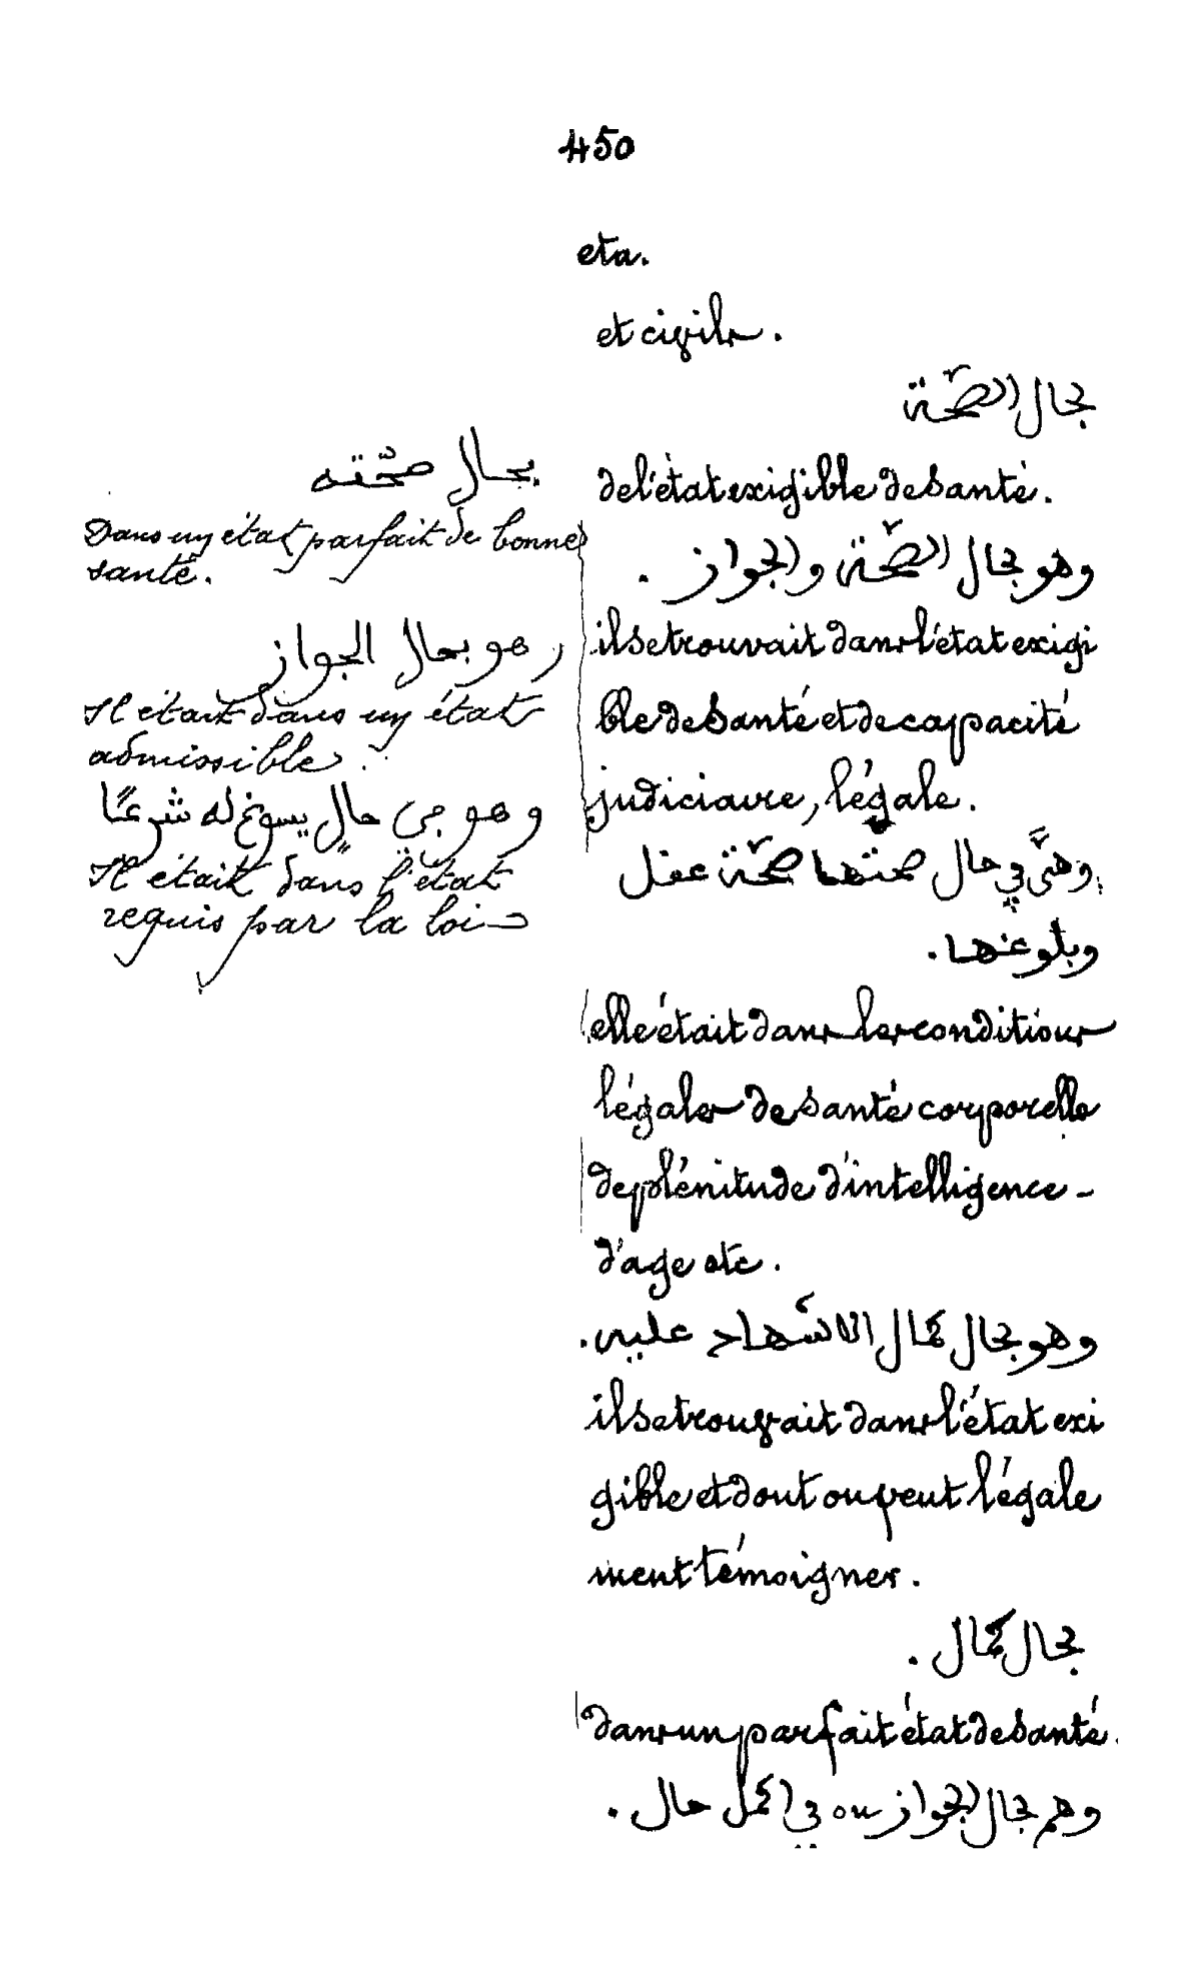 450
eta.
et civile.
بحال الصّحّة
de l'état exigible de santé.
وهو بحال الصّحّة والجواز.
il se trouvait dans l'état exigi
ble de santé et de capacité
judiciaire, légale.
وهىَّ في حال صحّتها صحّة عقل
وبلوغها.
elle était dans les conditions
légales de santé corporelle
de plénitude d'intelligence -
d'age etc.
وهو بحال كمال الاشهاد عليه.
il se trouvait dans l'état exi
gible et dont on peut légale
ment témoigner.
بحال كمال.
dans un parfait état de santé.
وهم بحال الجواز ou في اكمل حال.
بحال صحّته
Dans un état parfait de bonne
santé.
وهو بحال الجواز
Il était dans un état
admissible.
وهو في حالٍ يسوغ له شرعًا
Il était dans l'état
requis par la loi